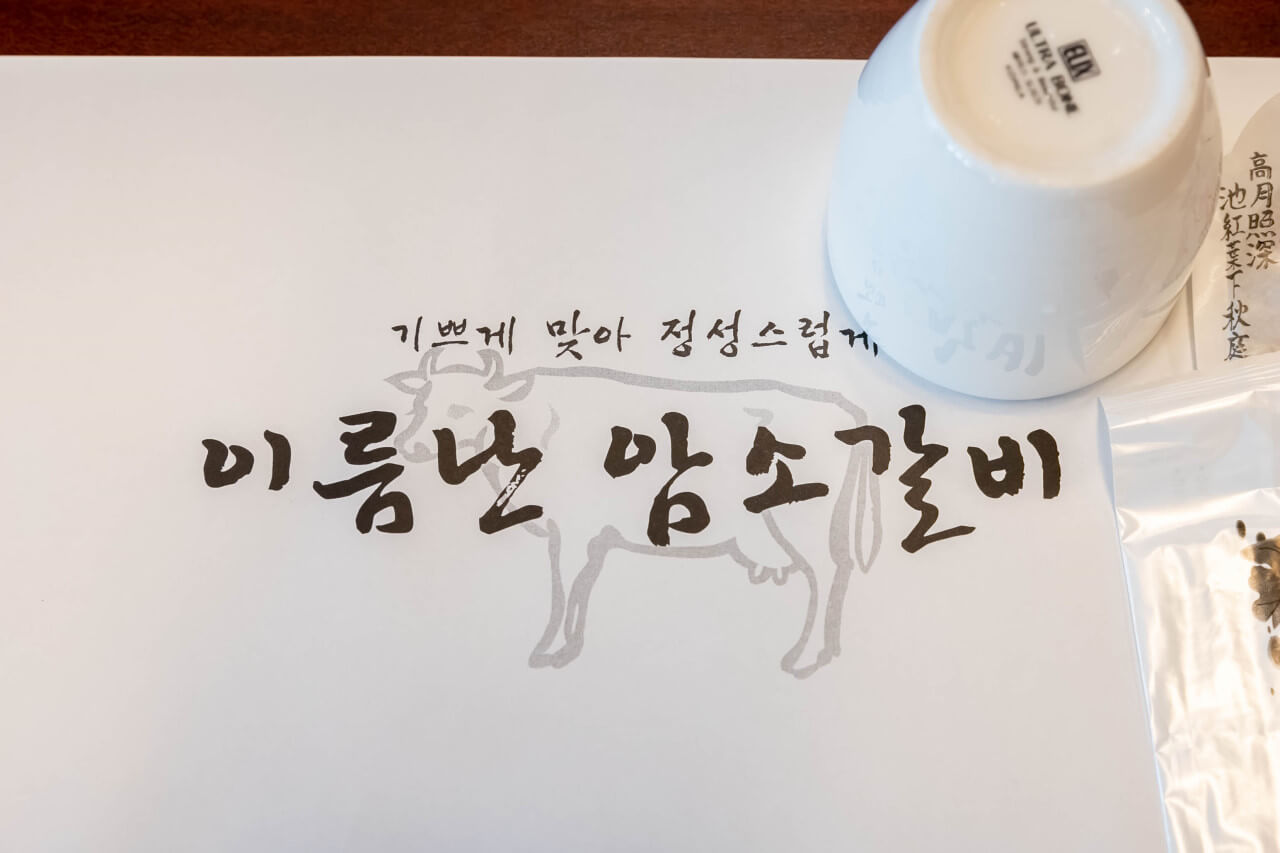 기쁘게 맞아 정성스럽게
이름난 암소갈비
ELIX
ULTRA BONE
KOREA
高月照深
池紅葉下秋庭